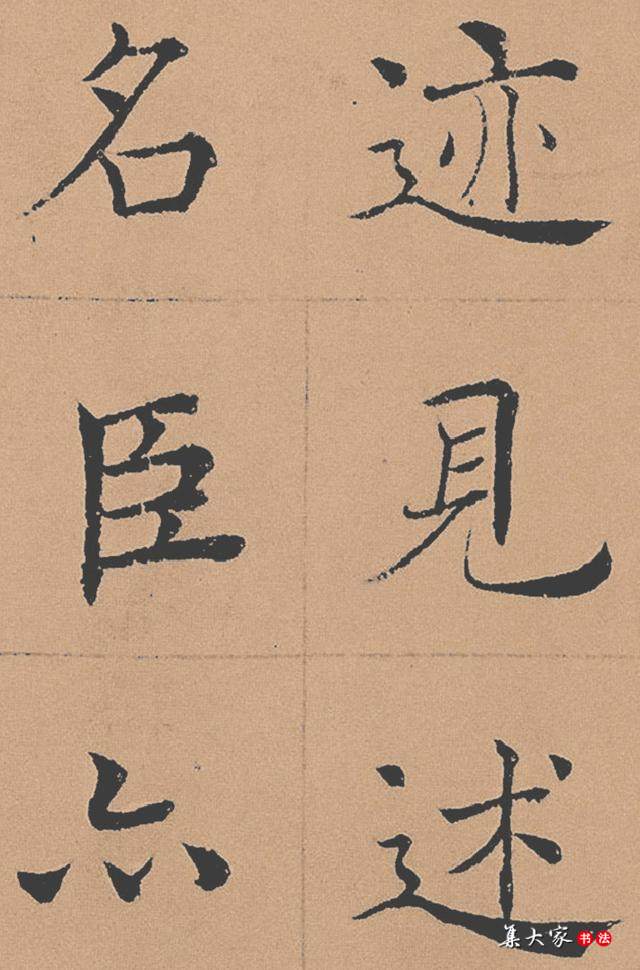 迹見述
名臣亦
集大家书法